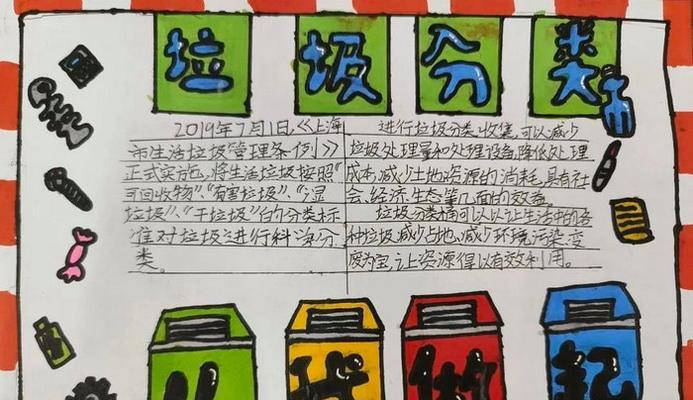 垃圾分类
2019年7月1日,《上海
市生活垃圾管理条例》
正式实施,将生活垃圾按照"
可回收物"、"有害垃圾"、"湿
垃圾"、"干垃圾"的分类标
准对垃圾进行科学分
类。
进行垃圾分类收集可以减少
垃圾处理量和处理设备,降低处理
成本,减少土地资源的消耗,具有社
会、经济、生态等几面的效益。
垃圾分类桶可以以让生活中的各
种垃圾减少占地、减少环境污染、变
废为宝,让资源得以有效利用。
从我做起